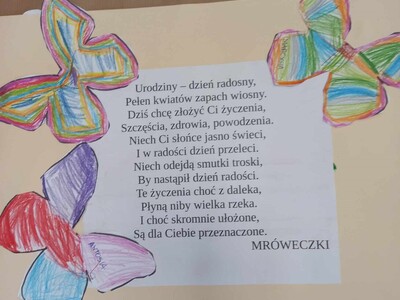 Urodziny – dzień radosny,
Pełen kwiatów zapach wiosny.
Dziś chcę złożyć Ci życzenia,
Szczęścia, zdrowia, powodzenia.
Niech Ci słońce jasno świeci,
I w radości dzień przeleci.
Niech odejdą smutki troski,
By nastąpił dzień radości.
Te życzenia choć z daleka,
Płyną niby wielka rzeka.
I choć skromnie ułożone,
Są dla Ciebie przeznaczone.
MRÓWECZKI